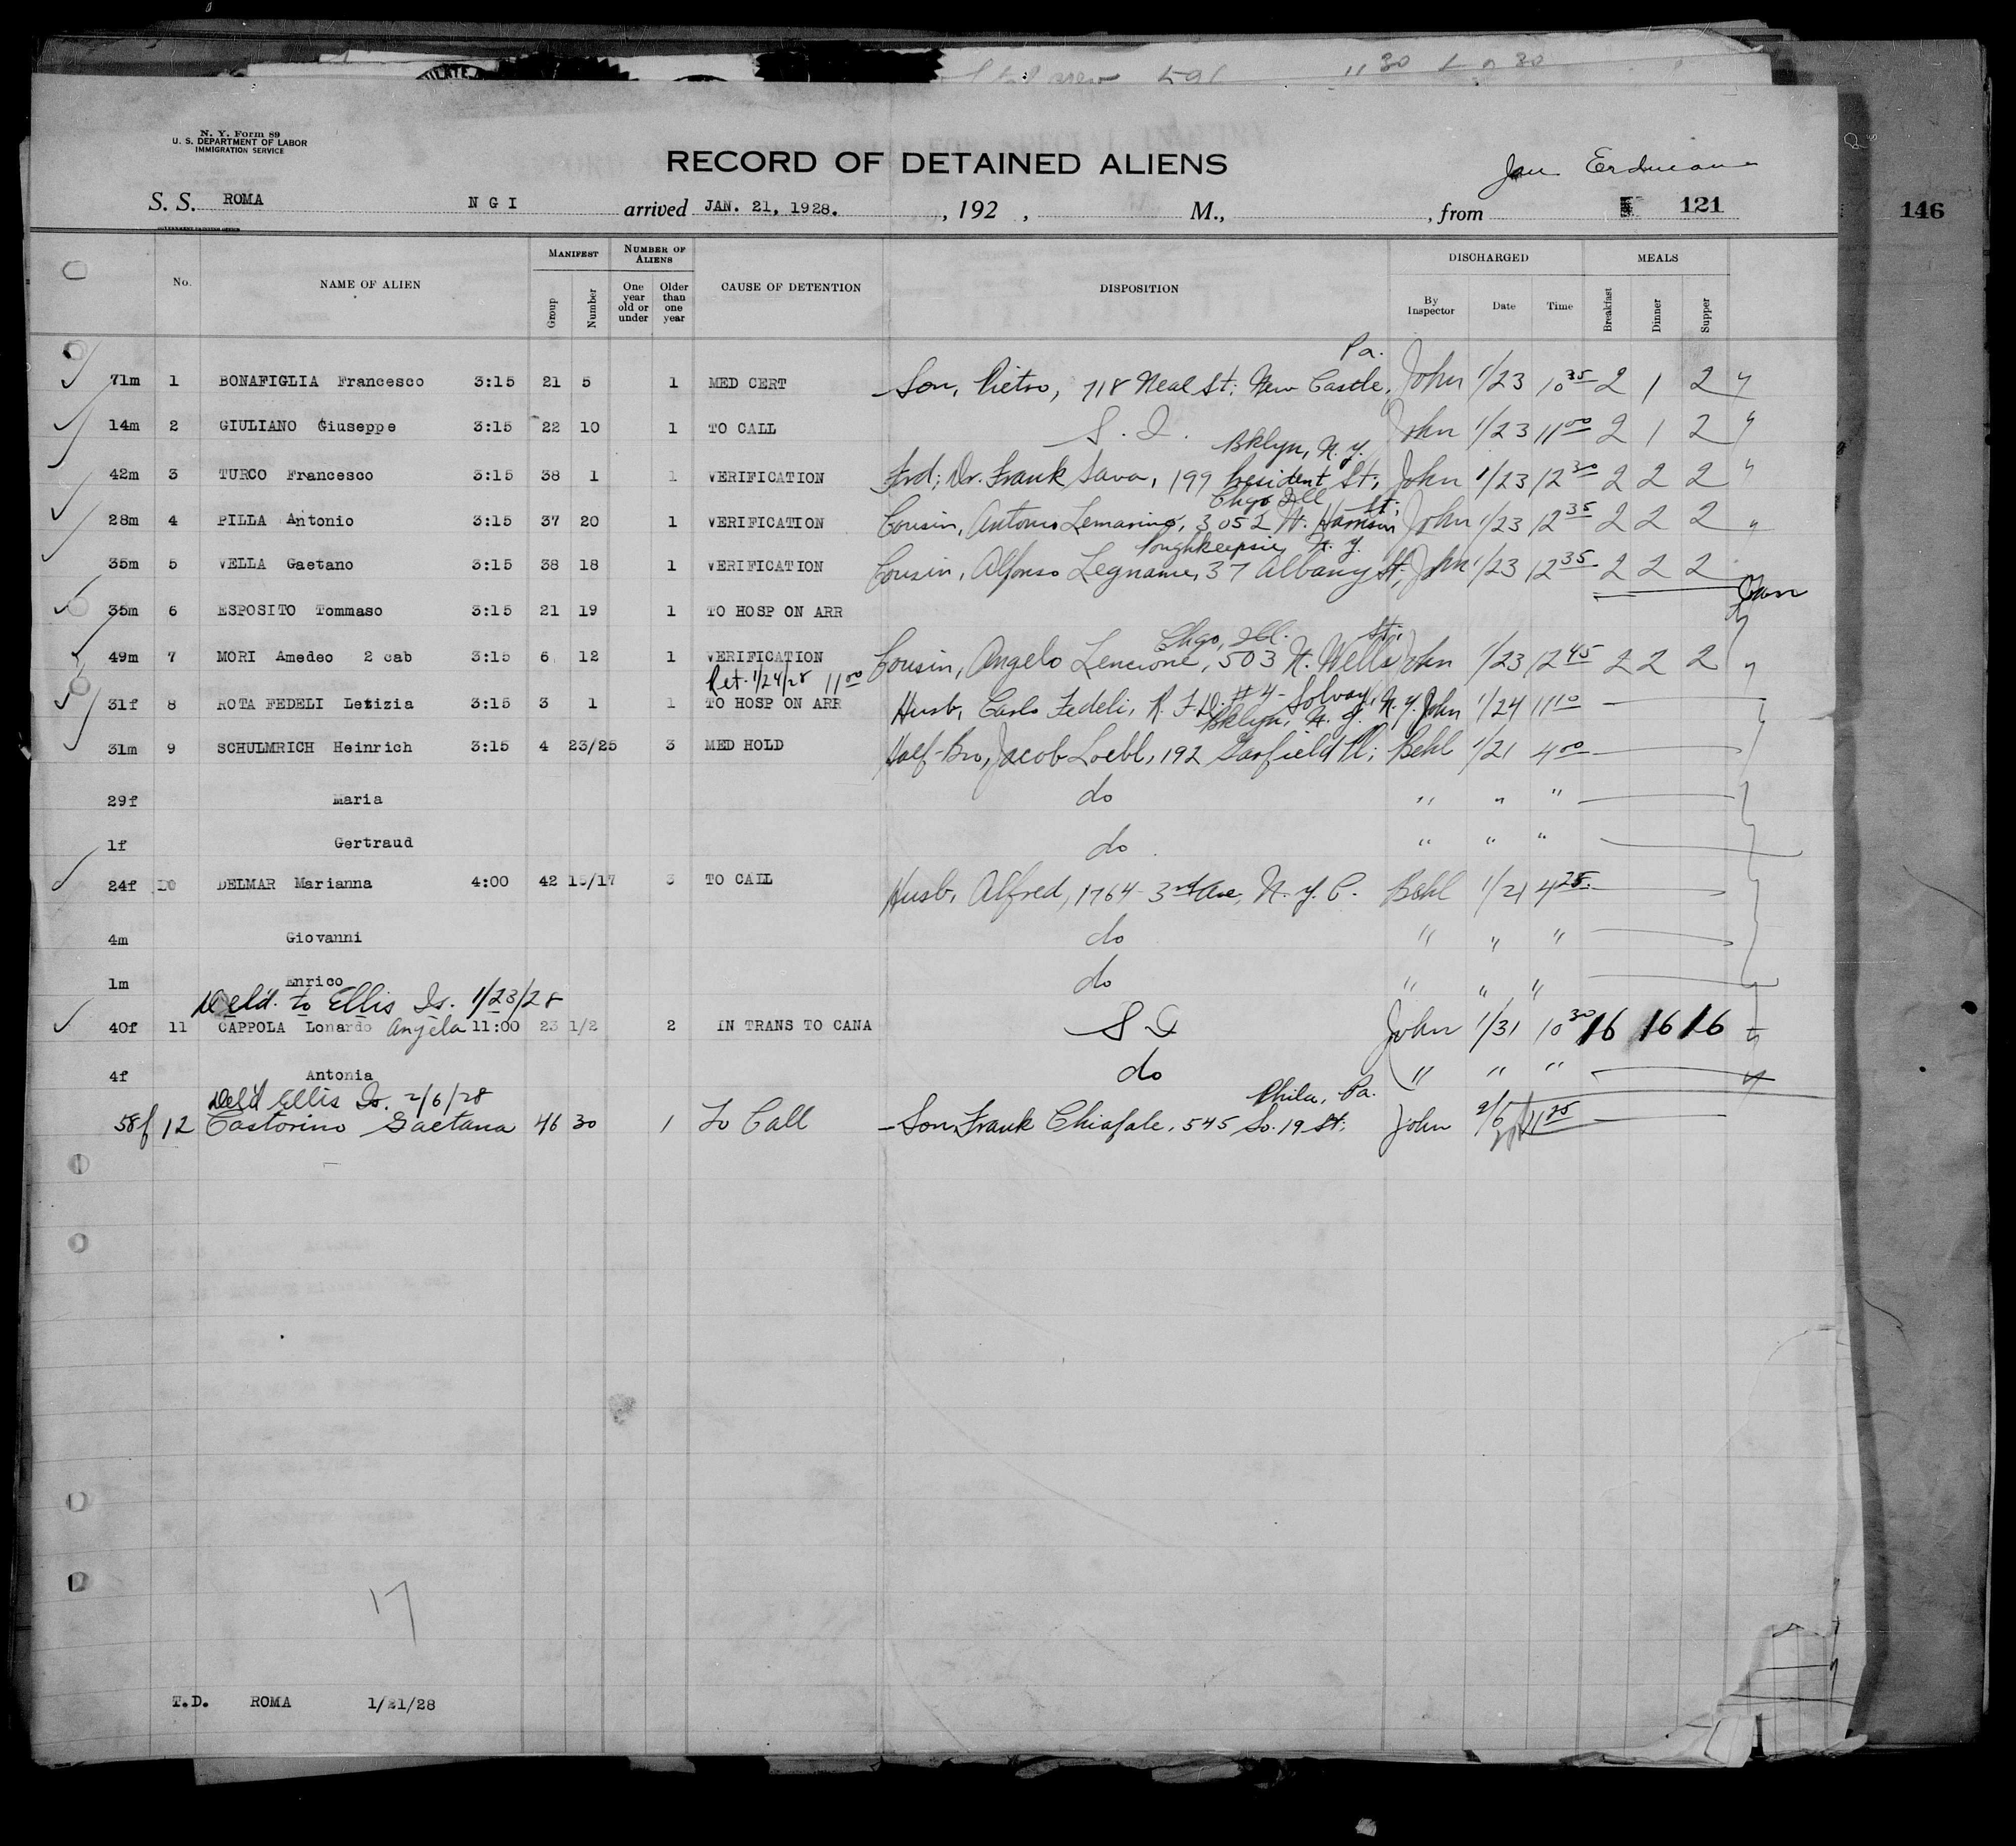 N. Y. Form 89
U. S. DEPARTMENT OF LABOR
IMMIGRATION SERVICE
RECORD OF DETAINED ALIENS
S. S. ROMA N G I arrived JAN. 21, 1928. , 192 , M., , from 121
146
No. NAME OF ALIEN MANIFEST Group Number NUMBER OF ALIENS One year old or under Older than one year CAUSE OF DETENTION DISPOSITION DISCHARGED By Inspector Date Time MEALS Breakfast Dinner Supper
Pa.
71m 1 BONAFIGLIA Francesco 3:15 21 5 1 MED CERT Son, Pietro, 718 Neal St; New Castle, John 1/23 10 35 2 1 2
14m 2 GIULIANO Giuseppe 3:15 22 10 1 TO CALL S. I. John 1/23 11 00 2 1 2
Bklyn, N. Y.
42m 3 TURCO Francesco 3:15 38 1 1 VERIFICATION Frd; Dr. Frank Sava, 199 President St; John 1/23 12 30 2 2 2
Chgo Ill St;
28m 4 PILLA Antonio 3:15 37 20 1 VERIFICATION Cousin, Antonio Lemarino, 3052 W. Harrison John 1/23 12 35 2 2 2
Poughkeepsie, N. Y.
35m 5 VELLA Gaetano 3:15 38 18 1 VERIFICATION Cousin, Alfonso Legname, 37 Albany St; John 1/23 12 35 2 2 2
35m 6 ESPOSITO Tommaso 3:15 21 19 1 TO HOSP ON ARR
Chgo, Ill. St;
49m 7 MORI Amedeo 2 cab 3:15 6 12 1 VERIFICATION Cousin, Angelo Lencione, 503 N. Wells John 1/23 12 45 2 2 2
Ret. 1/24/28 11 00
31f 8 ROTA FEDELI Letizia 3:15 3 1 1 TO HOSP ON ARR Husb, Carlo Fedeli, R. F. D. #4- Solvay, N. Y. John 1/24 11 10
Bklyn, N. Y.
31m 9 SCHULMRICH Heinrich 3:15 4 23/25 3 MED HOLD Half-Bro, Jacob Loebl, 192 Garfield Pl; Behl 1/21 4 00
29f Maria do " " "
1f Gertraud do " " "
24f 10 DELMAR Marianna 4:00 42 15/17 3 TO CALL Husb, Alfred, 1764- 3rd Ave, N. Y. C. Behl 1/21 4 25
4m Giovanni do " " "
1m Enrico do " " "
Del'd. to Ellis Is. 1/23/28
40f 11 CAPPOLA Lonardo Angela 11:00 23 1/2 2 IN TRANS TO CANA S I John 1/31 10 30 16 16 16
4f Antonia do " " "
Del'd Ellis Is. 2/6/28 Phila, Pa.
58f 12 Castorino Gaetana 46 30 1 To Call Son Frank Chiafale, 545 So. 19 St; John 2/6 11 25
17
T.D. ROMA 1/21/28